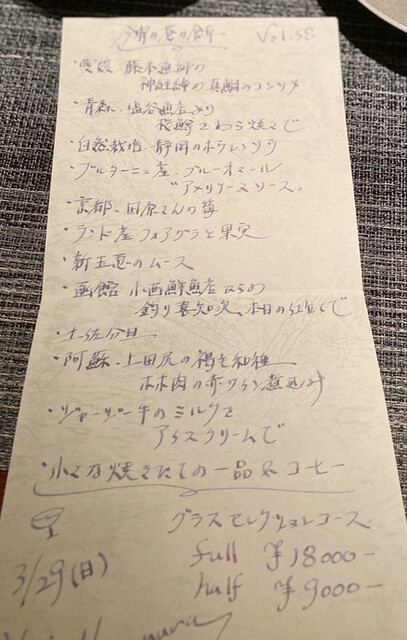 Vol.58
・愛媛 藤本魚師の
神経〆の真鯛のコンソメ
・青森、塩谷魚店より
桜鱒を わら焼きで
・自然栽培、静岡のホウレンソウ
・ブルターニュ産、ブルーオマール
"アメリケーヌソース"
・京都、田原さんの苺
・ランド産フォアグラと果実
・新玉葱のムース
・函館 小西鮮魚店からの
釣り喜知次、本日の仕立てで
・土佐分旦
・阿蘇、上田尻の褐毛和種
ホホ肉の赤ワイン煮込み
・ジャージー牛のミルクを
アイスクリームで
・小さな焼きたての一品 & コーヒー
グラスセレクションコース
3/29(日)
full ¥18000-
half ¥9000-